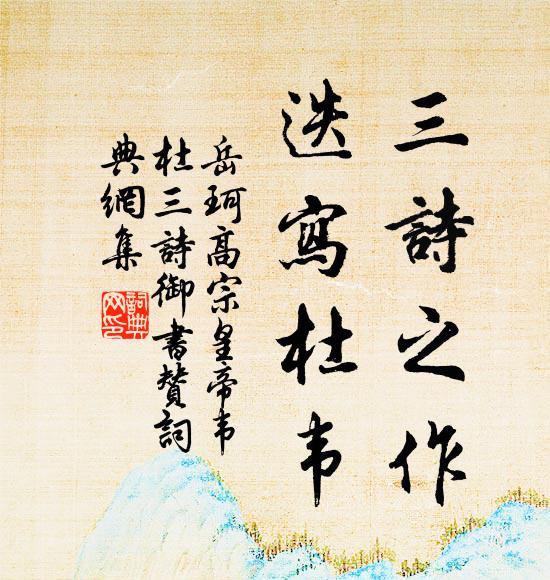 三詩之作
迭寫杜韦
岳珂高宗皇帝韦
杜三詩御書贊詞
典網集
詞典
网印